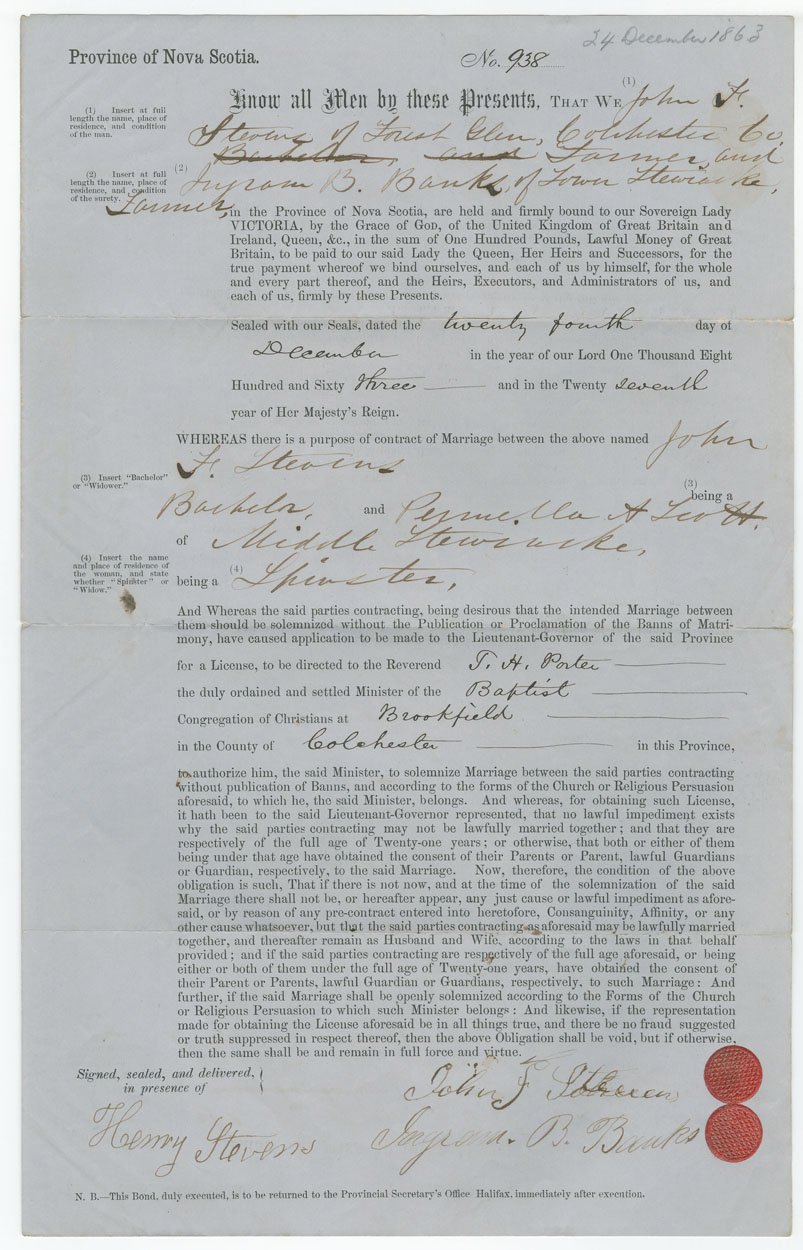 24 December 1863
Province of Nova Scotia.
No. 938
Know all Men by these Presents, THAT WE (1) John F.
(1) Insert at full
length the name, place of
residence, and condition
of the man.
Stevens of Forest Glen, Colchester Co,
Bachelor, and Farmer, and
(2) Insert at full
length the name, place of
residence, and condition
of the surety.
(2) Ingram B. Banks, of Lower Stewiacke,
Farmer, in the Province of Nova Scotia, are held and firmly bound to our Sovereign Lady
VICTORIA, by the Grace of GOD, of the United Kingdom of Great Britain and
Ireland, Queen, &c., in the sum of One Hundred Pounds, Lawful Money of Great
Britain, to be paid to our said Lady the Queen, Her Heirs and Successors, for the
true payment whereof we bind ourselves, and each of us by himself, for the whole
and every part thereof, and the Heirs, Executors, and Administrators of us, and
each of us, firmly by these Presents.
Sealed with our Seals, dated the twenty fourth day of
December in the year of our Lord One Thousand Eight
Hundred and Sixty three and in the Twenty seventh
year of Her Majesty's Reign.
WHEREAS there is a purpose of contract of Marriage between the above named John
F. Stevens
(3) Insert "Bachelor"
or "Widower."
(3)
being a
Bachelor, and A Scott
of Middle Stewiacke,
(4) Insert the name
and place of residence of
the woman, and state
whether "Spinster" or
"Widow."
being a (4) Spinster,
And Whereas the said parties contracting, being desirous that the intended Marriage between
them should be solemnized without the Publication or Proclamation of the Banns of Matri-
mony, have caused application to be made to the Lieutenant-Governor of the said Province
for a License, to be directed to the Reverend T. H. Porter
the duly ordained and settled Minister of the Baptist
Congregation of Christians at Brookfield
in the County of Colchester in this Province,
to authorize him, the said Minister, to solemnize Marriage between the said parties contracting
without publication of Banns, and according to the forms of the Church or Religious Persuasion
aforesaid, to which he, the said Minister, belongs. And whereas, for obtaining such License,
it hath been to the said Lieutenant-Governor represented, that no lawful impediment exists
why the said parties contracting may not be lawfully married together; and that they are
respectively of the full age of Twenty-one years; or otherwise, that both or either of them
being under that age have obtained the consent of their Parents or Parent, lawful Guardians
or Guardian, respectively, to the said Marriage. Now, therefore, the condition of the above
obligation is such, That if there is not now, and at the time of the solemnization of the said
Marriage there shall not be, or hereafter appear, any just cause or lawful impediment as afore-
said, or by reason of any pre-contract entered into heretofore, Consanguinity, Affinity, or any
other cause whatsoever, but that the said parties contracting as aforesaid may be lawfully married
together, and thereafter remain as Husband and Wife, according to the laws in that behalf
provided; and if the said parties contracting are respectively of the full age aforesaid, or being
either or both of them under the full age of Twenty-one years, have obtained the consent of
their Parent or Parents, lawful Guardian or Guardians, respectively, to such Marriage: And
further, if the said Marriage shall be openly solemnized according to the Forms of the Church
or Religious Persuasion to which such Minister belongs: And likewise, if the representation
made for obtaining the License aforesaid be in all things true, and there be no fraud suggested
or truth suppressed in respect thereof, then the above Obligation shall be void, but if otherwise,
then the same shall be and remain in full force and virtue.
Signed, sealed, and delivered,
in presence of
John F Stevens
Henry Stevens
Ingram. B. Banks
N. B.—This Bond, duly executed, is to be returned to the Provincial Secretary's Office Halifax, immediately after execution.